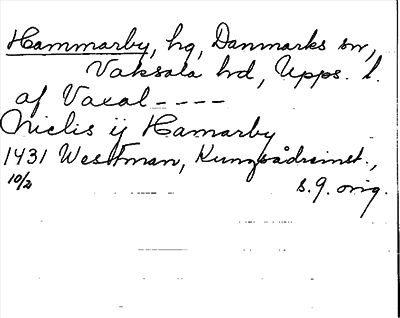 Hammarby, hg, Danmarks sn,
Vaksala hd, Upps. l.
af Vaxal - - - -
Nielis ij Hamarby
1431 Westman, Kungsådreinst.,
10/2 s. 9. orig.